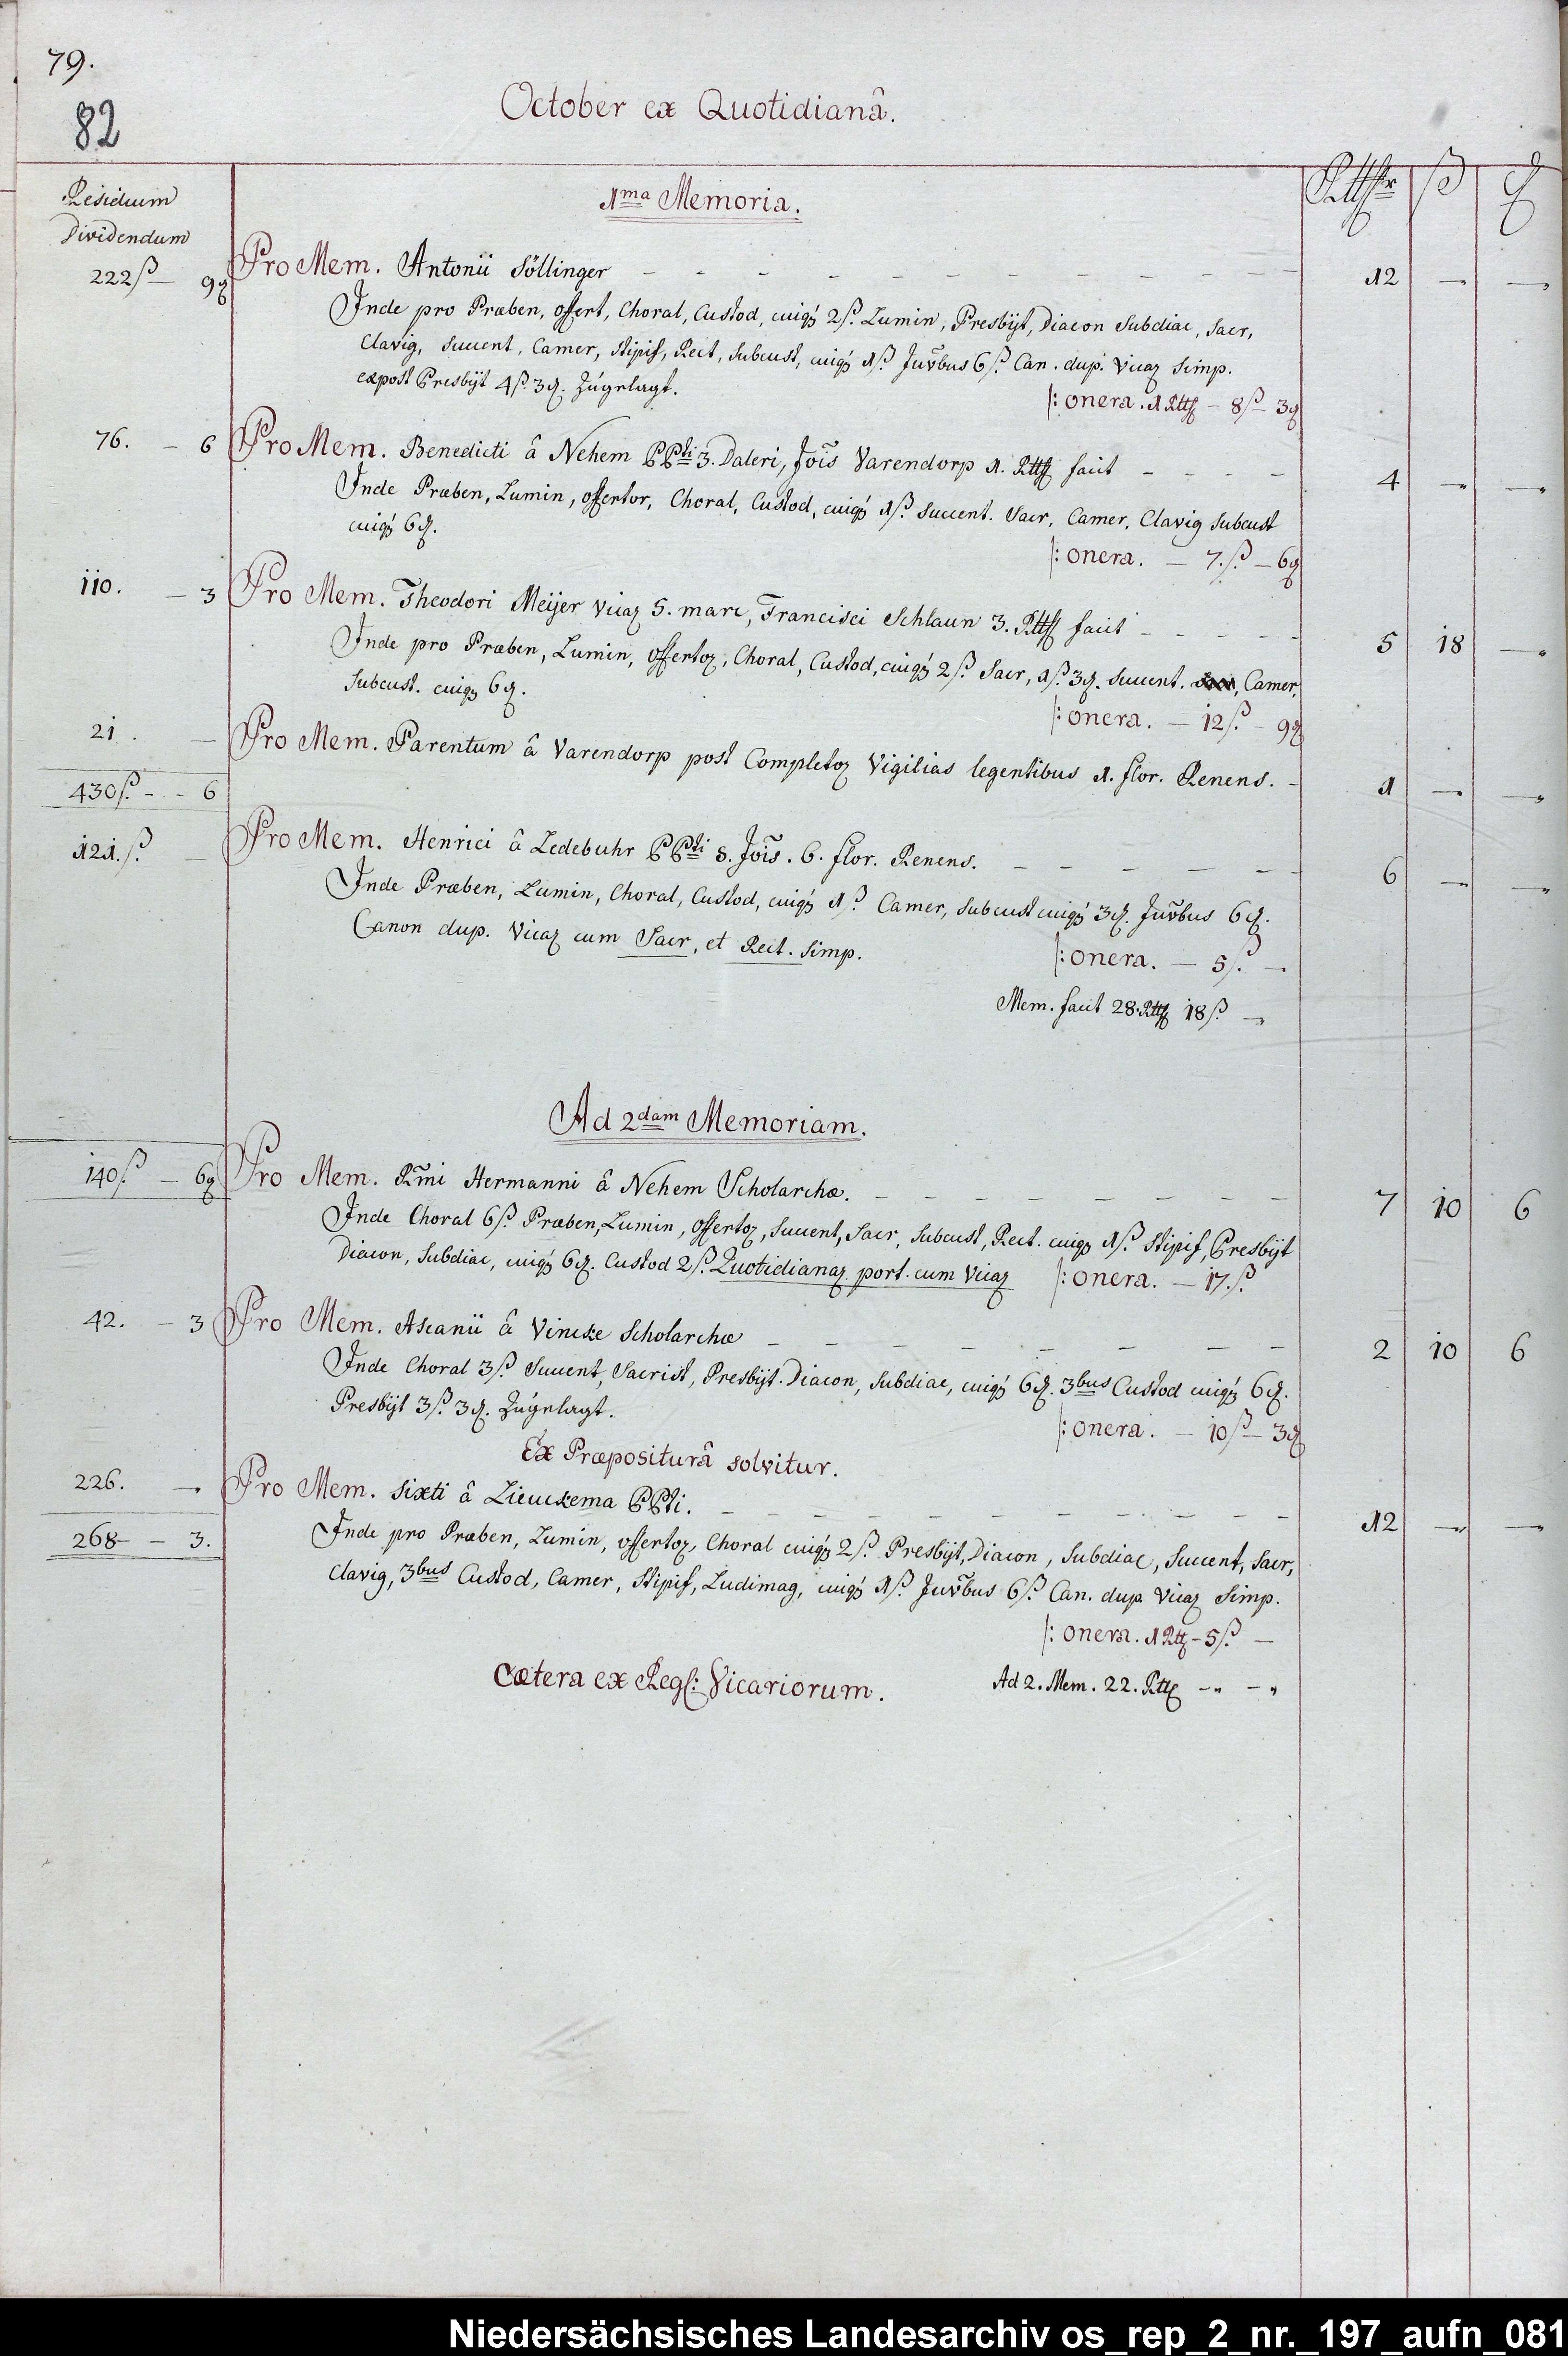 79.
82
October ex Quotidianâ.
Residuum
Dividendum
1ma Memoria.
Rthlr ß ₰
222ß — 9₰ Pro Mem. Antonii Söllinger - - - - - - - - - - - 12 — —
Inde pro Præben, offert, Choral, Custod, cuiqꝫ 2ß. Lumin, Presbÿt, Diacon Subdiac, Sacr,
Clavig, Succent, Camer, Stipif, Rect, Subcust, cuiqꝫ 1ß. Juv̄bus 6ß. Can. dup. Vicaꝝ Simp.
expost Presbÿt 4ß. 3₰. Zugelagt.
|: onera. 1 Rtt — 8ß — 3₰
76. — 6 Pro Mem. Benedicti â Nehem PPti 3. Daleri, Jois̄ Varendorp 1. Rtt facit - - - - 4 — —
Inde Præben, Lumin, offertor, Choral, Custod, cuiqꝫ 1ß. Succent. Sacr, Camer, Clavig Subcust
cuiqꝫ 6₰.
|: onera. — 7.ß. — 6₰
110. — 3 Pro Mem. Theodori Meijer Vicaꝝ 5. marc, Francisci Schlaun 3. Rtt facit - - - - - 5 18 —
Inde pro Præben, Lumin, offertoꝝ, Choral, Custod, cuiqꝫ 2ß. Sacr, 1ß. 3₰. Succent. Camer,
Subcust. cuiqꝫ 6₰.
|: onera. — 12ß. — 9₰
21. — Pro Mem. Parentum â Varendorp post Completoꝝ Vigilias legentibus 1. flor. Renens. - 1 — —
430ß. - - 6
121.ß. — Pro Mem. Henrici â Ledebuhr PPti S. Jois̄. 6. flor. Renens. - - - - - - 6 — —
Inde Præben, Lumin, Choral, Custod, cuiqꝫ 1ß. Camer, Subcust cuiqꝫ 3₰. Juv̄bus 6₰.
Canon dup. Vicaꝝ cum Sacr, et Rect. Simp.
|: onera. — 5ß. —
Mem. facit 28. Rtt 18ß. —
Ad 2dam Memoriam.
140ß. — 6₰ Pro Mem. Rm̄i Hermanni â Nehem Scholarchæ. - - - - - - - - 7 10 6
Inde Choral 6ß. Præben, Lumin, offertoꝝ, Succent, Sacr, Subcust, Rect. cuiqꝫ 1ß. Stipif, Presbÿt
Diacon, Subdiac, cuiqꝫ 6₰. Custod 2ß. Quotidianaꝝ port. cum Vicaꝝ |: onera. — 17.ß.
42. — 3 Pro Mem. Ascanii â Vincke Scholarchæ - - - - - - - - 2 10 6
Inde Choral 3ß. Succent, Sacrist, Presbÿt. Diacon, Subdiac, cuiqꝫ 6₰. 3bus Custod cuiqꝫ 6₰.
Presbÿt 3ß. 3₰. Zugelagt.
|: onera. — 10ß — 3₰
Ex Præpositurâ solvitur.
226. — Pro Mem. Sixti â Lieuckema PPti. - - - - - - - - - - 12 — —
268 — 3.
Inde pro Præben, Lumin, offertoꝝ, Choral cuiqꝫ 2ß. Presbÿt, Diacon, Subdiac, Succent, Sacr,
Clavig, 3bus Custod, Camer, Stipif, Ludimag, cuiqꝫ 1ß. Juv̄bus 6ß. Can. dup. Vicaꝝ Simp.
|: onera. 1 Rtt — 5ß. —
Cætera ex Regs: Vicariorum. Ad 2. Mem. 22. Rtt — —
Niedersächsisches Landesarchiv os_rep_2_nr._197_aufn_081